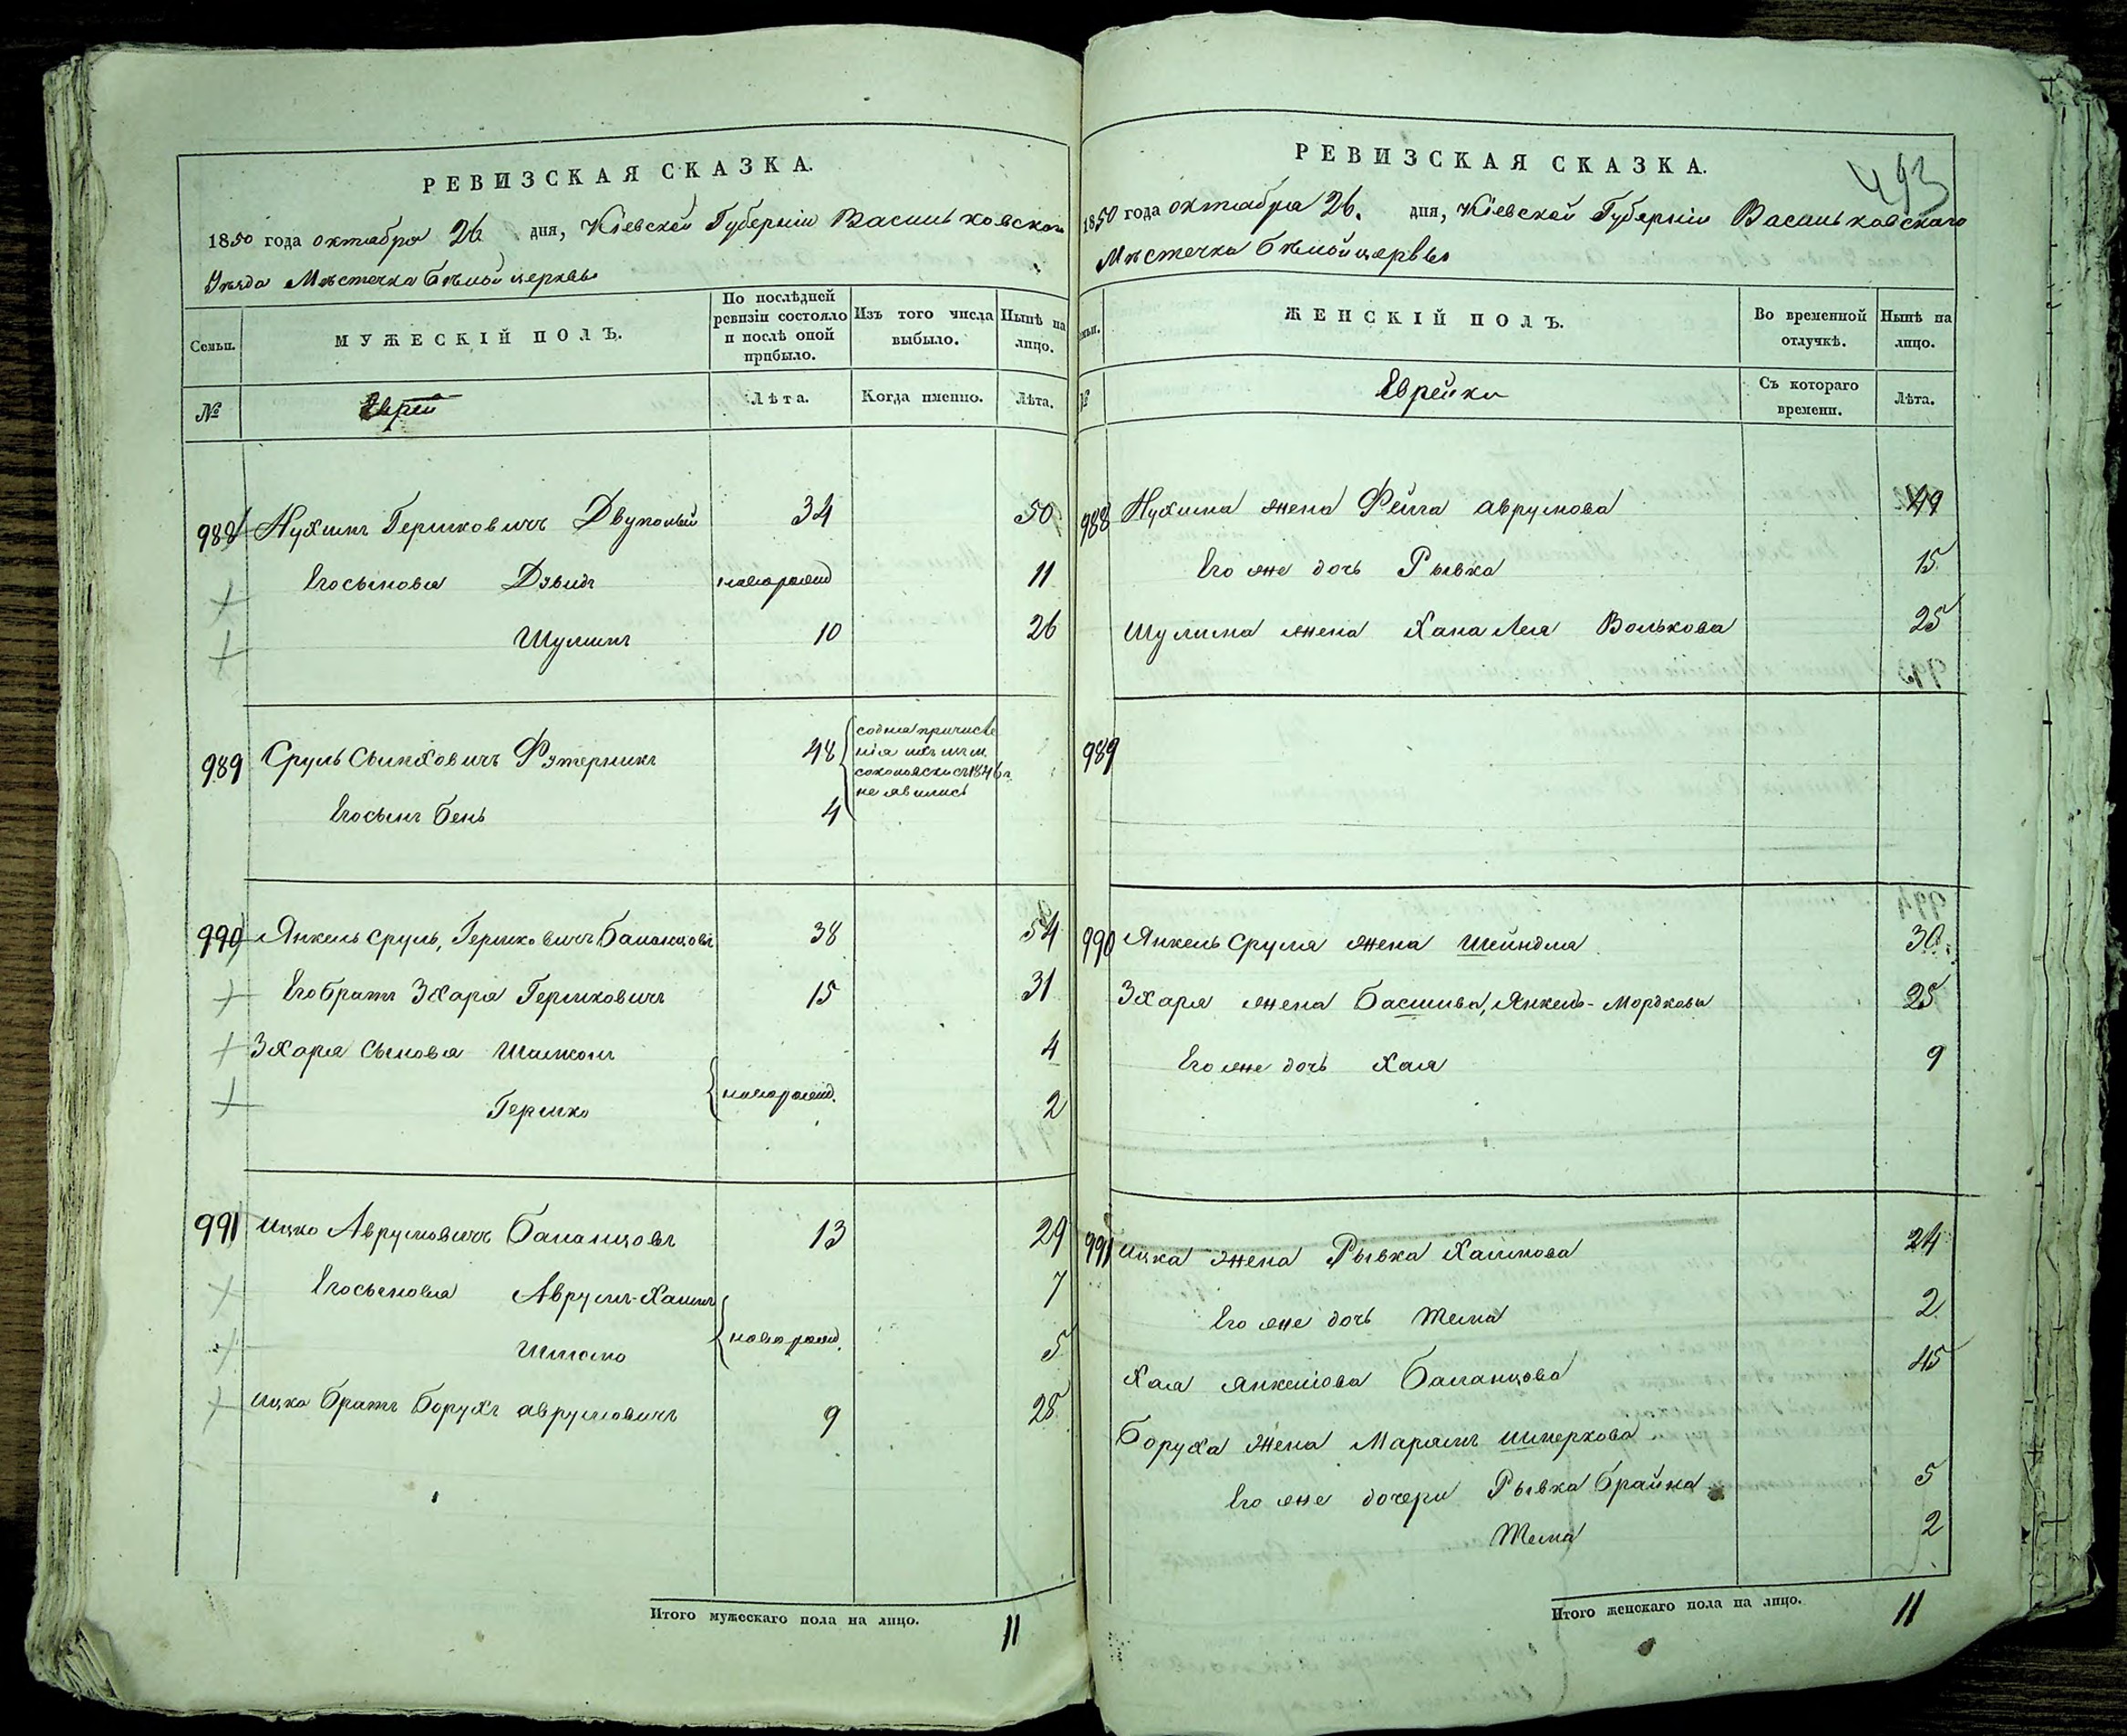 РЕВИЗСКАЯ СКАЗКА.
1850 года октября 26 дня, Кіевской Губерніи Васильковскаго
Уѣзда Мѣстечка бѣлой церквы
Семьи.
МУЖЕСКІЙ ПОЛЪ.
По послѣдней ревизіи состояло и послѣ оной прибыло.
Изъ того числа выбыло.
Нынѣ на лицо.
№
Евреи
Лѣта.
Когда именно.
Лѣта.
988 Нухимъ Гершковичъ Двуполый 34 50
Его сыновья Дэвидъ новорожд 11
Шулимъ 10 26
989 Сруль Сынховичъ Фэтерникъ 48
со дня причисле
нія ихъ
съ 1846 г.
не явились
Его сынъ бень 4
990 Янкель Сруль, Гершковичъ Баланцовъ 38 54
Его братъ Зхаря Гершковичъ 15 31
Зхаря Сыновья Шлиомъ 4
Гершко новорожд. 2
991 Ицко Аврумовичъ Баланцовъ 13 29
Его сыновья Аврумъ-Хаимъ 7
новорожд.
Шлиомо 5
Ицка братъ Борухъ аврумовичъ 9 28
Итого мужескаго пола на лицо. 11
493
РЕВИЗСКАЯ СКАЗКА.
1850 года октября 26. дня, Кіевской Губерніи Васильковскаго
Мѣстечка бѣлой церквы
Семьи.
ЖЕНСКІЙ ПОЛЪ.
Во временной отлучкѣ.
Нынѣ на лицо.
№
Еврейки
Съ котораго времени.
Лѣта.
988 Нухима жена Фейга аврумова 49
Его же дочь Рывка 15
Шулима жена Хана Лея Волькова 25
989
990 Янкель Сруля жена Шейндля 30
Зхаря жена Басшива, Янкель-Мордкова 25
Его же дочь Хая 9
991 Ицка жена Рывка Хаимова 24
Его же дочь Тема 2
Хая Янкелова Баланцова 45
Боруха жена Марямъ
Его же дочери Рывка Брайна 5
Тема 2
Итого женскаго пола на лицо. 11